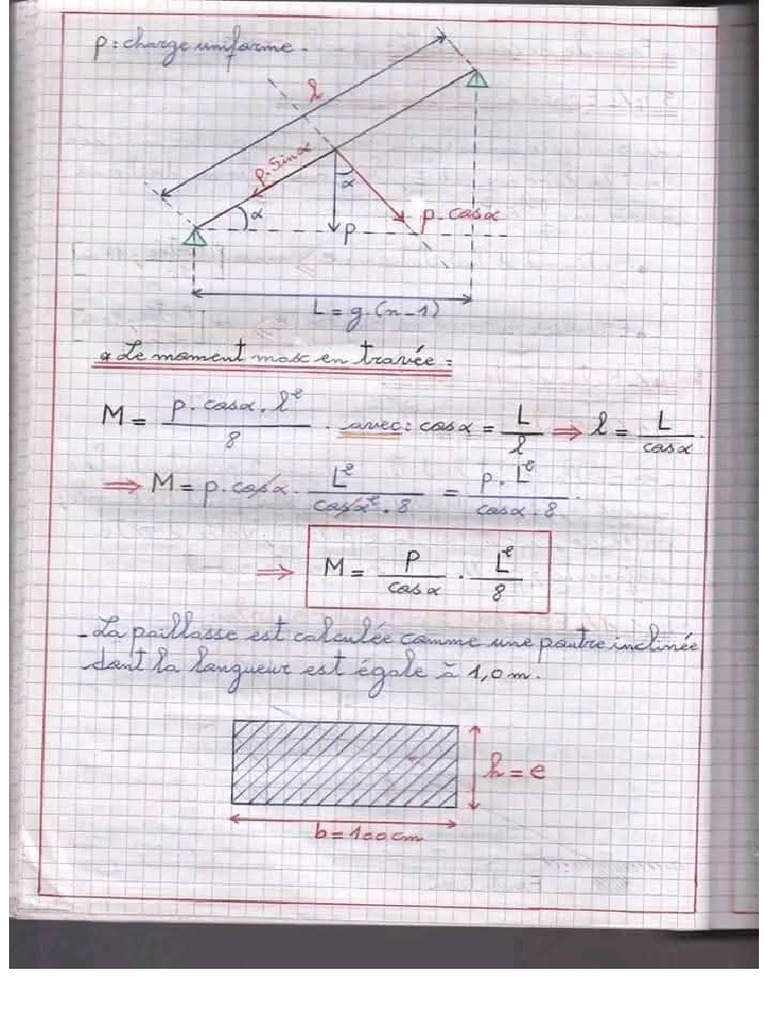 p : charge uniforme.
l
p. Sinα
α
α
p. cosα
p
L = g.(n-1)
* Le moment max en travée :
M = p. cosα. l² / 8 . avec : cosα = L / l ⇒ l = L / cosα .
⇒ M = p. cosα . L² / cosα² . 8 = p . L² / cosα . 8 .
⇒ M = P / cosα . L² / 8
- La paillasse est calculée comme une poutre inclinée
dont la longueur est égale à 1,0 m.
h = e
b = 100 cm